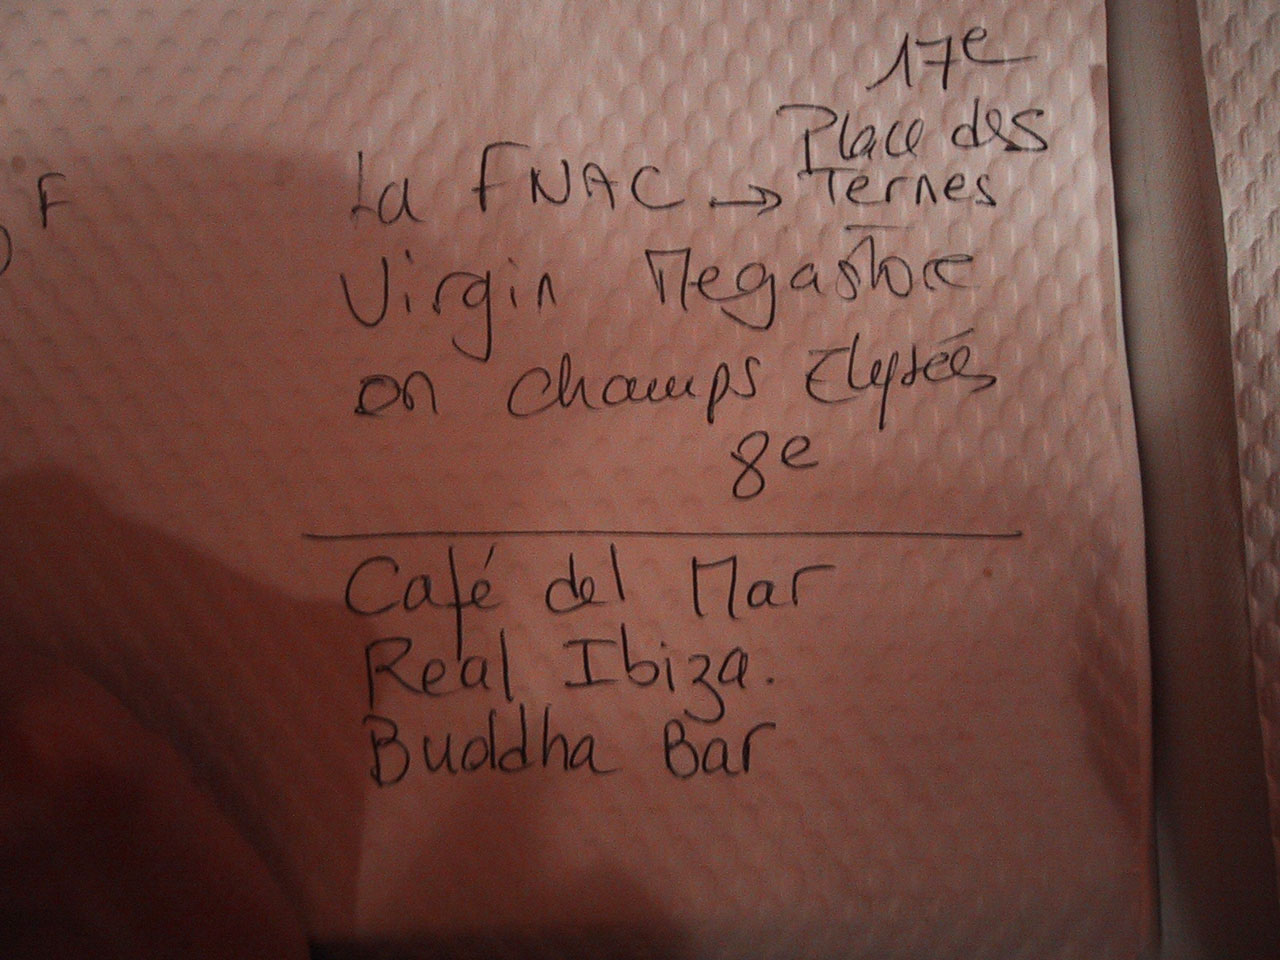 17e
Place des
La FNAC → Ternes
F
Virgin Megastore
on Champs Elysées
8e
Café del Mar
Real Ibiza.
Buddha Bar